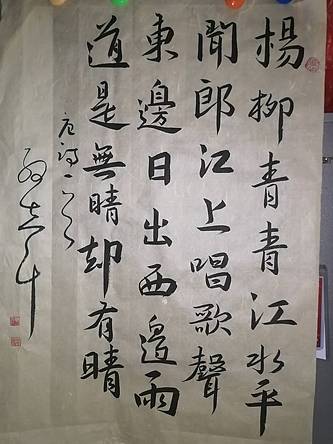 楊柳青青江水平
聞郎江上唱歌聲
東邊日出西邊雨
道是無晴却有晴
唐詩一首